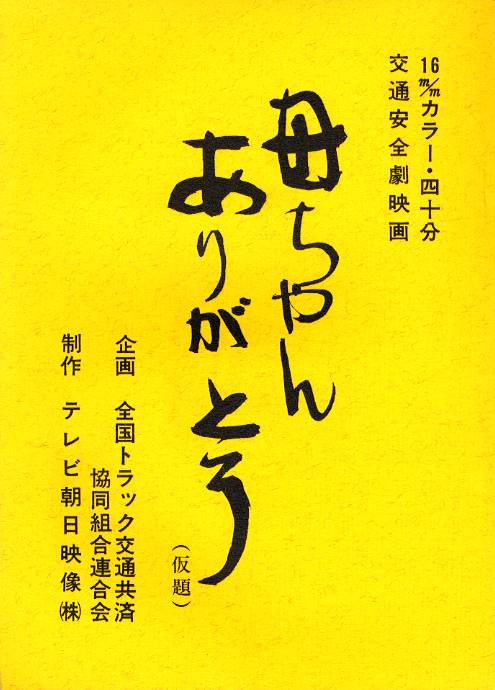 16㎜カラー・四十分
交通安全劇映画
母ちゃん
ありがとう
(仮題)
企画 全国トラック交通共済
協同組合連合会
制作 テレビ朝日映像㈱